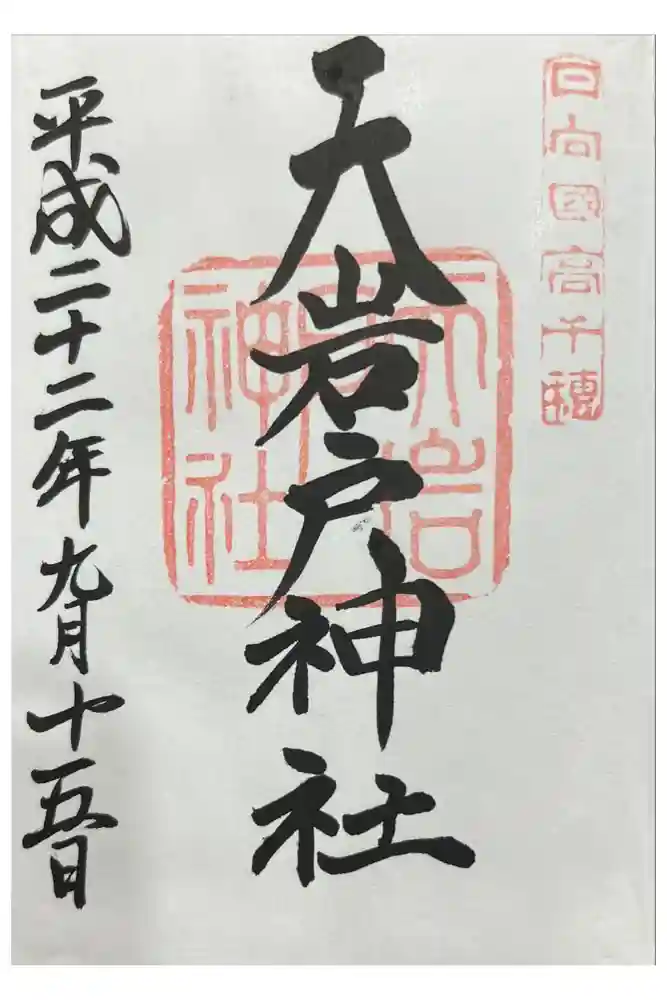 日向國高千穂
天岩戸神社
天岩戸
神社
平成二十二年九月十五日